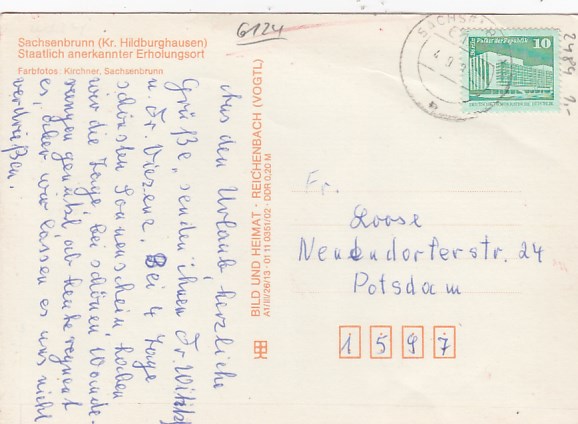 6124
Sachsenbrunn (Kr. Hildburghausen)
Staatlich anerkannter Erholungsort
Farbfotos: Kirchner, Sachsenbrunn
BILD UND HEIMAT · REICHENBACH (VOGTL)
A1/III/26/13 · 01 11 0351/02 · DDR 0,20 M
Aus den Urlaub herzliche
Grüße, senden ihnen Fr. Witzky
u. Fr. Viezenz. Bei 4 Tage
schönsten Sonnenschein, haben
wir die Tage bei schönen Wande-
rungen genützt ab heute regnet
es, aber wir lassen es uns nicht
verdrießen.
SACHSEN
Palast der Republik
10
Fr.
Loose
Neuendorferstr. 24
Potsdam
1597